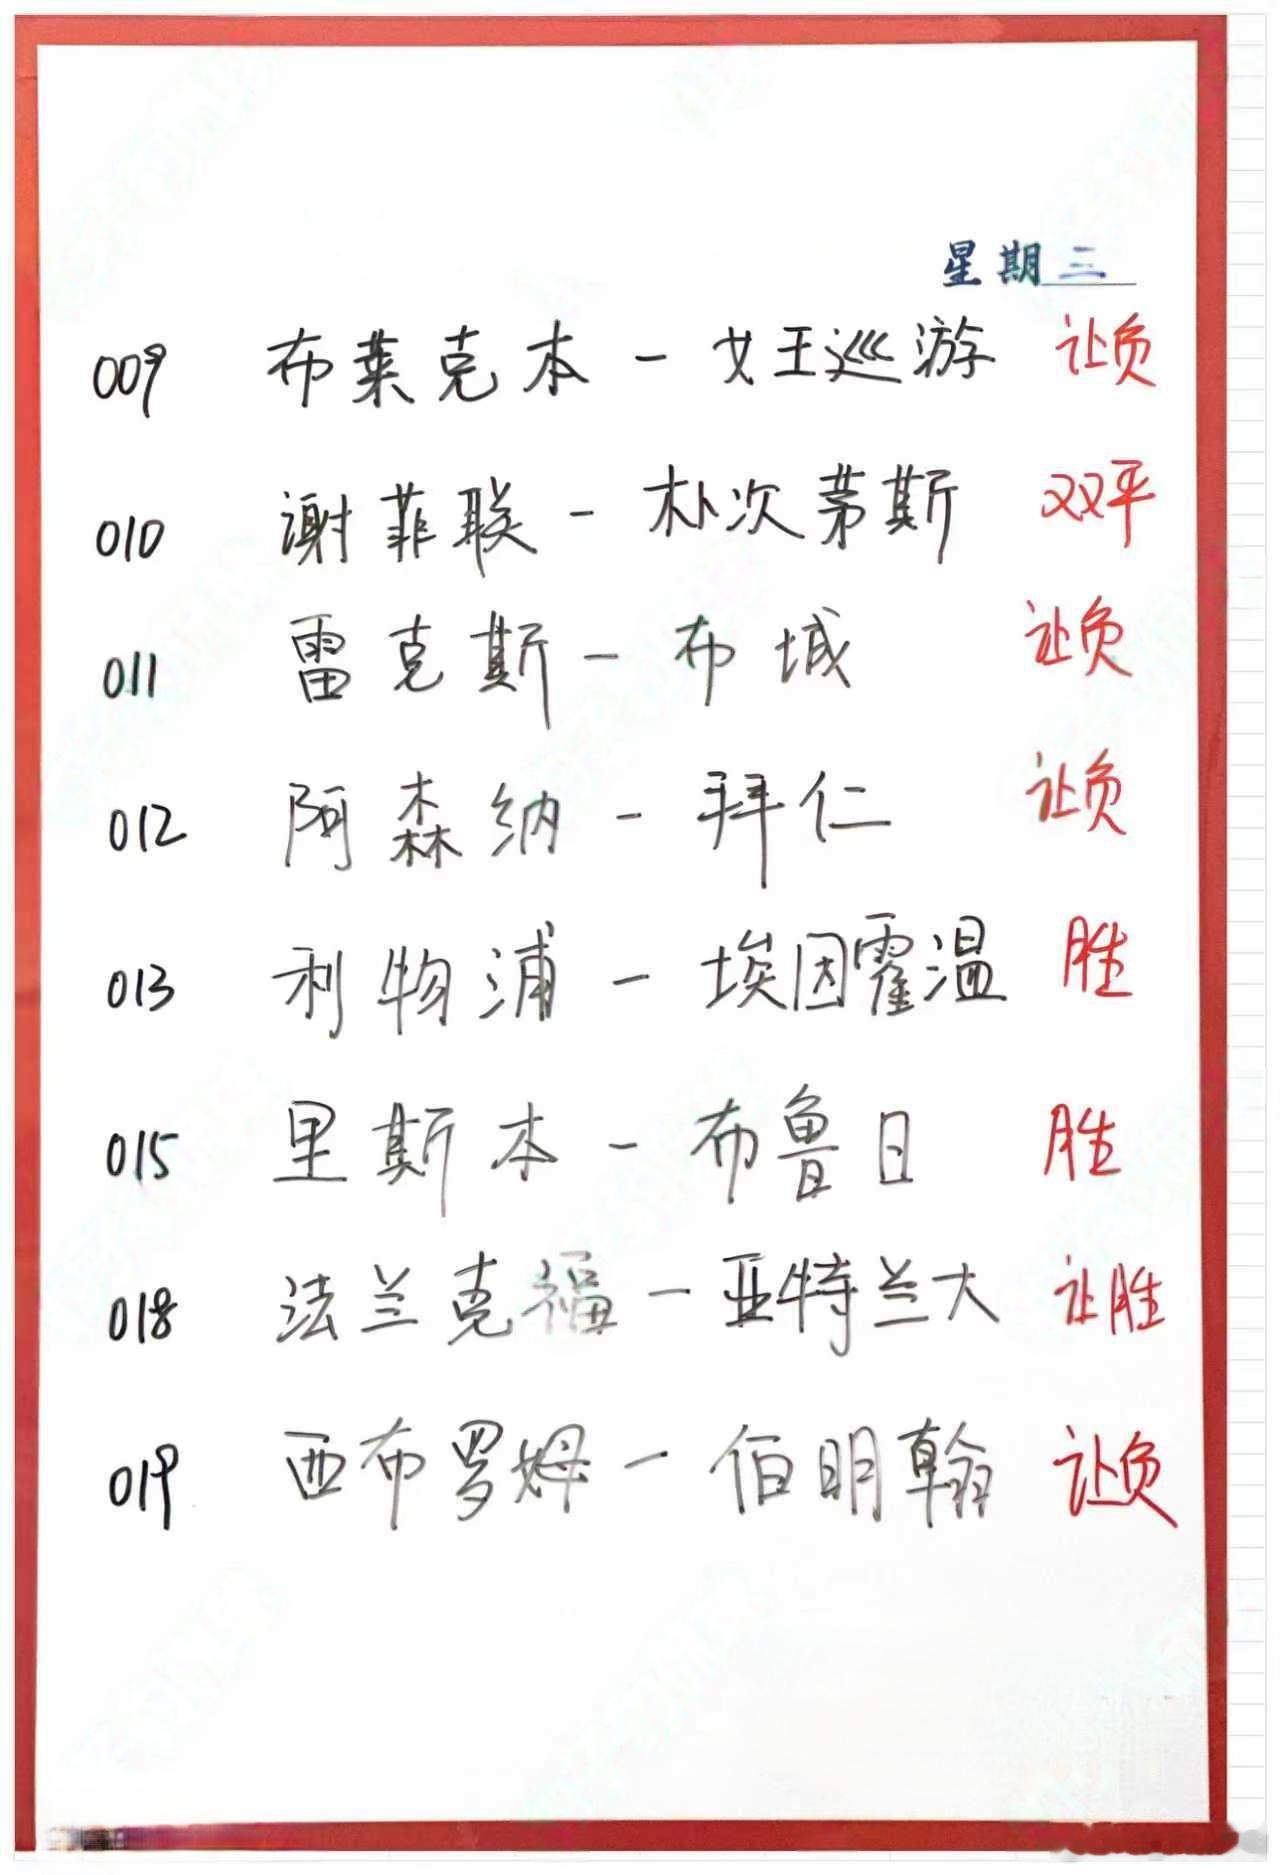 星期三
009 布莱克本 - 女王巡游 让负
010 谢菲联 - 朴次茅斯 双平
011 雷克斯 - 布城 让负
012 阿森纳 - 拜仁 让负
013 利物浦 - 埃因霍温 胜
015 里斯本 - 布鲁日 胜
018 法兰克福 - 亚特兰大 让胜
019 西布罗姆 - 伯明翰 让负